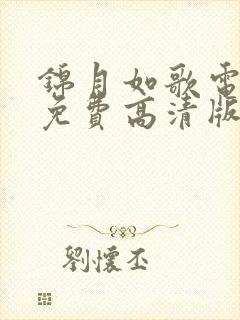 錦月如歌電
免費高清版
劉懷丕